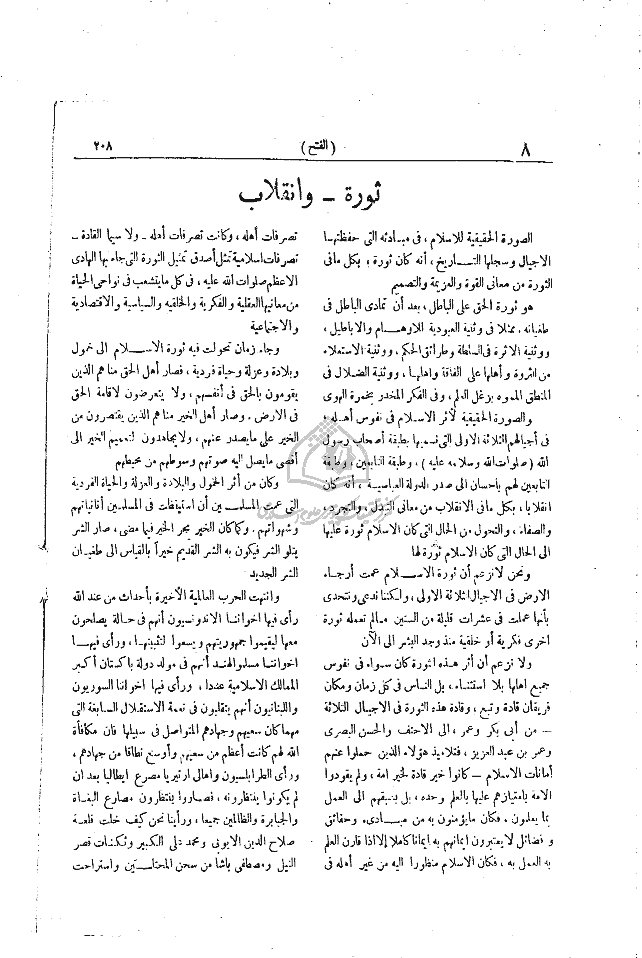 ٨
(الفتح)
٢٠٨
ثورة ـ وانقلاب
الصورة الحقيقية للاسلام ، فى مبادئه التى حفظتها
الاجيال وسجلها التــاريخ ، أنه كان ثورة ؛ بكل مافى
الثورة من معانى القوة والعزيمة والتصميم
هو ثورة الحق على الباطل ، بعد أن تمادى الباطل فى
طغيانه . ممثلا فى وثنية العبودية للاوهــام والاباطيل ،
ووثنية الاثرة فى السلطة وطرائق الحكم ، ووثنية الاستعلاء
من الثروة و أهلها على الفاقة واهلها ، ووثنية الضلال فى
المنطق المموه بزغل العلم ، وفى الفكر المخدر بخمرة الهوى
والصورة الحقيقية لأثر الاسلام فى نفوس أهله ؛
فى أجيالهم الثلاثة الاولى التى نسميها بطبقة أصحاب رسول
الله ( صلوات الله وسلامه عليه ) ، وطبقة التابعين ، وطبقة
التابعين لهم باحسان الى صدر الدولة العباسية ، أنه كان
انقلابا ، بكل مافى الانقلاب من معانى التبدل ، والتجرد ،
والصفاء ، والتحول من الحال التى كان الاسلام ثورة عليها
الى الحال التى كان الاسلام ثورة لها
ونحن لانزعم أن ثورة الاســـلام عمت أرجاء
الارض فى الاجيال الثلاثة الاولى ، ولكننا ندعى ونتحدى
بأنها عملت فى عشرات قليلة من السنين مالم تعمله ثورة
اخرى فكرية أو خلقية منذ وجد البشر الى الآن
ولا نزعم أن أثر هذه الثورة كان سواء فى نفوس
جميع اهلها بلا استثناء ، بل الناس فى كل زمان ومكان
فريقان قادة وتبع ، وقادة هذه الثورة فى الاجيال الثلاثة
— من أبى بكر وعمر ، الى الاحنف والحسن البصرى
وعمر بن عبد العزيز ، فتلاميذ هؤلاء الذين حملوا عنهم
أمانات الاسلام — كانوا خير قادة لخير امة ، ولم يقودوا
الامة بامتيازهم عليها بالعلم وحده ، بل بسبقهم الى العمل
بما يعلمون . فكان مايؤمنون به من مبــادىء وحقائق
و فضائل لا يعتبرون ايمانهم به ايمانا كاملا إلا اذا قارن العلم
به العمل به ، فكان الاسلام منظورا اليه من غير أهله فى
تصرفات أهله ، وكانت تصرفات أهله ـ ولا سيما القادة ـ
تصرفات اسلامية تمثل أصدق تمثيل الثورة التى جاء بها الهادى
الاعظم صلوات الله عليه ، فى كل ما يتشعب فى نواحى الحياة
من معانيها العقلية والفكرية والخلقيه والسياسية والاقتصادية
والاجتماعية
وجاء زمان تحولت فيه ثورة الاســـلام الى خمول
وبلادة وعزلة وحياة فردية ، فصار أهل الحق منا هم الذين
يقومون بالحق فى أنفسهم ، ولا يتعرضون لاقامة الحق
فى الارض . وصار أهل الخير منا هم الذين يقتصرون من
الخير على مايصدر عنهم ، ولا يجاهدون لتعميم الخير الى
أقصى مايصل اليه صوتهم وسوطهم من محيطهم
وكان من أثر الخمول والبلادة والعزلة والحياة الفردية
التى عمت المسلمــين أن استيقظت فى المسلمين أنانياتهم
وشهواتهم . وكما كان الخير يجر الخير فيما مضى ، صار الشر
يتلو الشر فيكون به الشر القديم خيراً بالقياس الى طغيان
الشر الجديد
وانتهت الحرب العالمية الأخيرة بأحداث من عند الله
رأى فيها اخواننا الاندونسيون أنهم فى حالة يصلحون
معها ليقيموا جمهوريتهم و يسعوا لتثبيتهــا ، ورأى فيهــا
اخواننا مسلمو الهند أنهم فى مولد دولة باكستان أكبر
الممالك الاسلامية عددا ، ورأى فيها اخواننا السوريون
واللبنانيون أنهم يتقلبون فى نعمة الاستقلال السابغة التى
مهما كان سعيهم وجهادهم المتواصل فى سبيلها فان مكافأة
الله لهم كانت أعظم من سعيهم وأوسع نطاقا من جهادهم ،
ورأى الطرابلسيون واهالى ارتيريا مصرع ايطاليا بعد ان
لم يكونوا ينتظرونه ، فصاروا ينتظرون مصارع البغاة
والجبابرة والظالمين جميعا ، ورأينا نحن كيف خلت قلعــة
صلاح الدين الايوبى ومحمد على الكبير وثكنات قصر
النيل ومصطفى باشا من سحن المحتلـين واستراحت